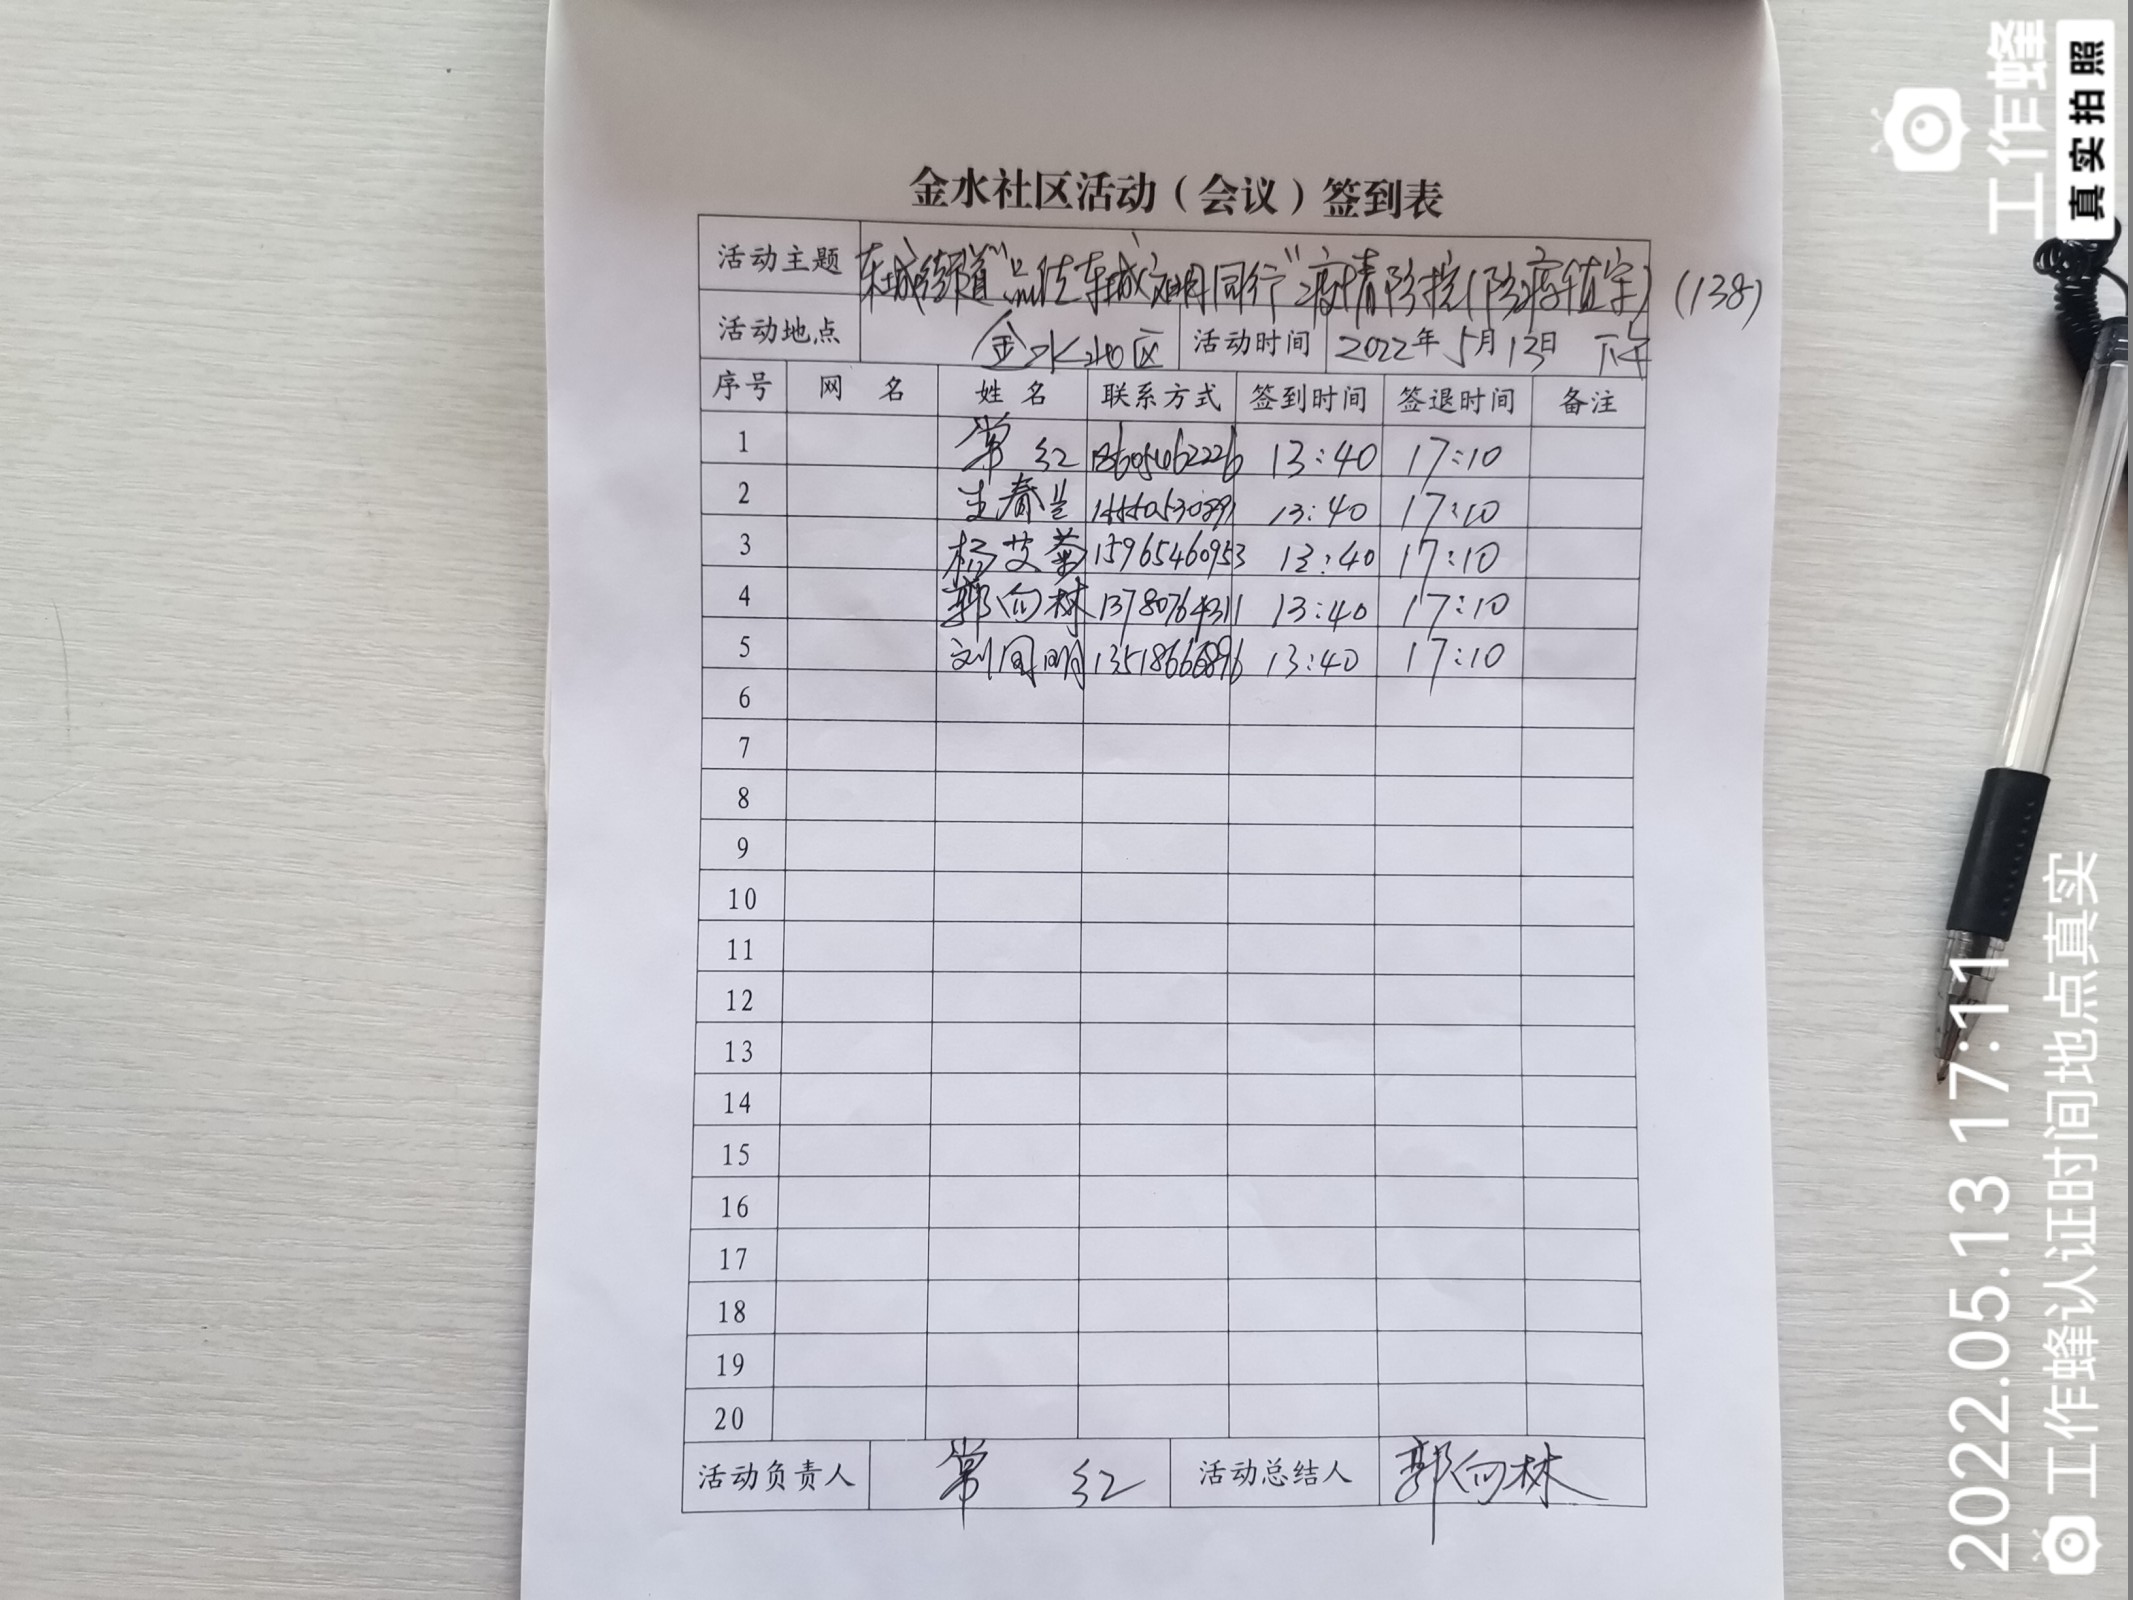 金水社区活动（会议）签到表
活动主题 东城街道"品德东城文明同行"疫情防控(防疫值守) (138)
活动地点 金水社区 活动时间 2022年5月13日 下午
序号 网 名 姓 名 联系方式 签到时间 签退时间 备注
1 常红 13:40 17:10
2 王春兰 13:40 17:10
3 杨艾菊 15965460953 13:40 17:10
4 郭向林 13780764311 13:40 17:10
5 刘同明 13518666896 13:40 17:10
6
7
8
9
10
11
12
13
14
15
16
17
18
19
20
活动负责人 常红 活动总结人 郭向林
工作蜂
真实拍照
2022.05.13 17:11
工作蜂认证时间地点真实